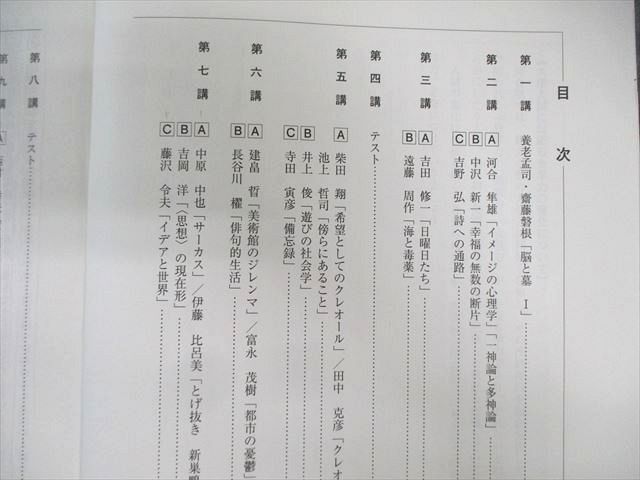 目次
第一講 養老孟司・齋藤磐根「脳と墓 Ⅰ」
第二講 A 河合 隼雄「イメージの心理学」「一神論と多神論」
B 中沢 新一「幸福の無数の断片」
C 吉野 弘「詩への通路」
第三講 A 吉田 修一「日曜日たち」
B 遠藤 周作「海と毒薬」
第四講 テスト
第五講 A 柴田 翔「希望としてのクレオール」／田中 克彦「クレオ
池上 哲司「傍らにあること」
B 井上 俊「遊びの社会学」
C 寺田 寅彦「備忘録」
第六講 A 建畠 晢「美術館のジレンマ」／富永 茂樹「都市の憂鬱」
B 長谷川 櫂「俳句的生活」
第七講 A 中原 中也「サーカス」／伊藤 比呂美「とげ抜き 新巣鴨
B 吉岡 洋「〈思想〉の現在形」
C 藤沢 令夫「イデアと世界」
第八講 テスト
第九講 A